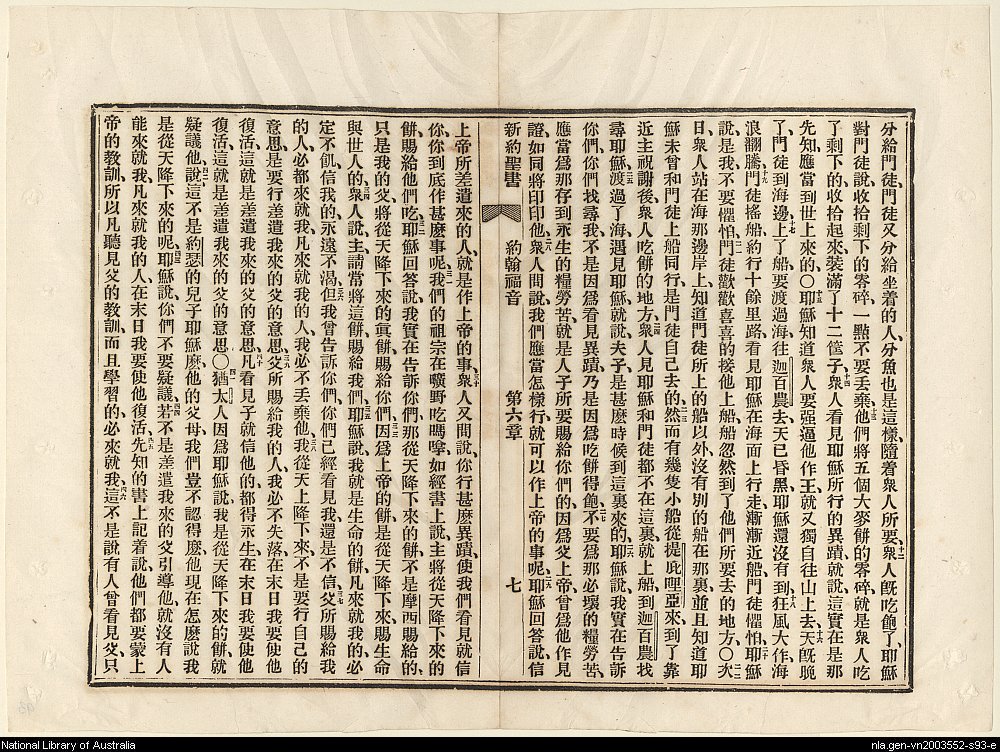 分給門徒、門徒又分給坐着的人、分魚也是這樣、隨着衆人所要、十二衆人旣吃飽了、耶穌
對門徒說、收拾剩下的零碎、一點不要丟棄、十三他們將五個大麥餅的零碎、就是衆人吃
了剩下的、收拾起來、裝滿了十二筐子、十四衆人看見耶穌所行的異蹟、就說、這實在是那
先知、應當到世上來的〇十五耶穌知道衆人要强逼他作王、就又獨自往山上去、十六天旣晚
了、門徒到海邊、十七上了船、要渡過海往迦百農去、天已昏黑、耶穌還沒有到、十八狂風大作、海
浪翻騰、十九門徒搖船、約行十餘里路、看見耶穌在海面上行走、漸漸近船、門徒懼怕、二十耶穌
說、是我、不要懼怕、二一門徒歡歡喜喜的接他上船、船忽然到了他們所要去的地方〇二二次
日、衆人站在海那邊岸上、知道門徒所上的船以外、沒有別的船在那裏、並且知道耶
穌未曾和門徒上船同行、是門徒自己去的、二三然而有幾隻小船從提庇哩亞來、到了靠
近主祝謝後衆人吃餅的地方、二四衆人見耶穌和門徒都不在這裏、就上船到迦百農找
尋耶穌、二五渡過了海、遇見耶穌就說、夫子是甚麽時候到這裏來的、二六耶穌說、我實在告訴
你們、你們找尋我、不是因爲看見異蹟、乃是因爲吃餅得飽、二七不要爲那必壞的糧勞苦、
應當爲那存到永生的糧勞苦、就是人子所要賜給你們的、因爲父上帝曾爲他作見
證、如同將印印他、二八衆人問說、我們應當怎樣行、就可以作上帝的事呢、二九耶穌回答說、信
新約聖書 約翰福音 第六章 七
上帝所差遣來的人、就是作上帝的事、三十衆人又問說、你行甚麽異蹟、使我們看見就信
你、你到底作甚麽事呢、三一我們的祖宗在曠野吃嗎嗱、如經書上說、主將從天降下來的
餅賜給他們吃、三二耶穌回答說、我實在告訴你們、那從天降下來的餅、不是摩西賜給的、
只是我的父將從天降下來的眞餅賜給你們、三三因爲上帝的餅、是從天降下來賜生命
與世人的、三四衆人說、主、請當將這餅賜給我們、三五耶穌說、我就是生命的餅、凡來就我的、必
定不飢、信我的、永遠不渴、三六但我曾告訴你們、你們已經看見我、還是不信、三七父所賜給我
的人、必都來就我、凡來就我的人、我必不丟棄他、三八我從天上降下來、不是要行自己的
意思、是要行差遣我來的父的意思、三九父所賜給我的人、我必不失落、在末日我要使他
復活、這就是差遣我來的父的意思、四十凡看見子就信他的、都得永生、在末日我要使他
復活、這就是差遣我來的父的意思〇四一猶太人因爲耶穌說、我是從天降下來的餅、就
疑議他、四二說、這不是約瑟的兒子耶穌麽、他的父母我們豈不認得麽、他現在怎麽說、我
是從天降下來的呢、四三耶穌說、你們不要疑議、四四若不是差遣我來的父引導他、就沒有人
能來就我、凡來就我的人、在末日我要使他復活、四五先知的書上記着說、他們都要蒙上
帝的教訓、所以凡聽見父的教訓而且學習的、必來就我、四六這不是說有人曾看見父、只
National Library of Australia
nla.gen-vn2003552-s93-e